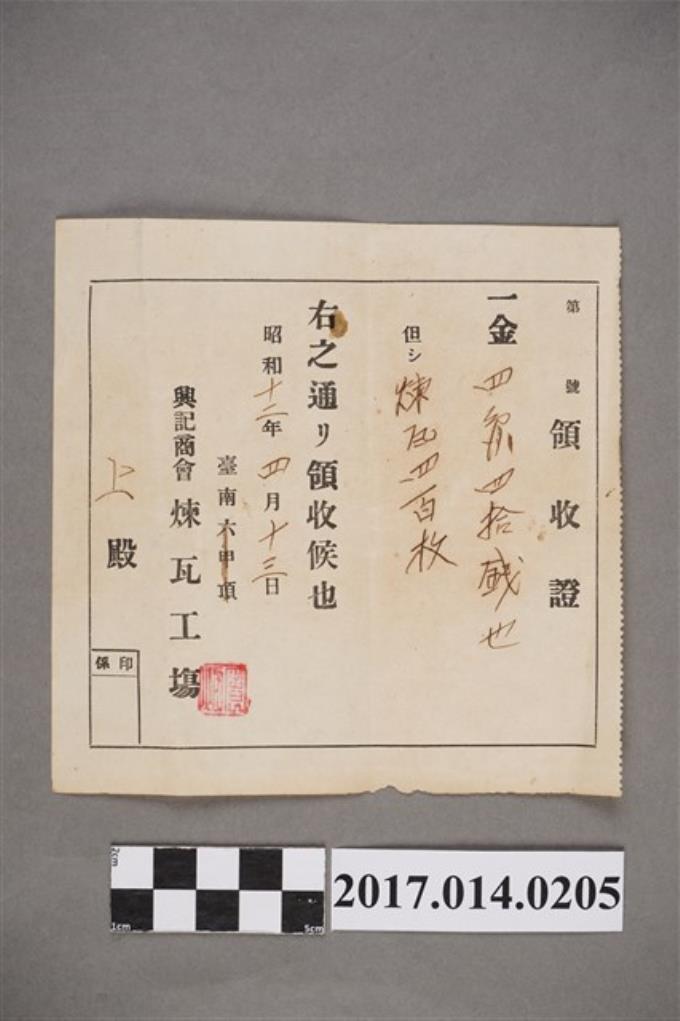 第 號 領收證
一金 四円四拾銭也
但シ 煉瓦四百枚
右之通リ領收候也
昭和十二年四月十三日
臺南六甲項
興記商會 煉瓦工場
上 殿
係印
2cm
1cm
5cm
2017.014.0205